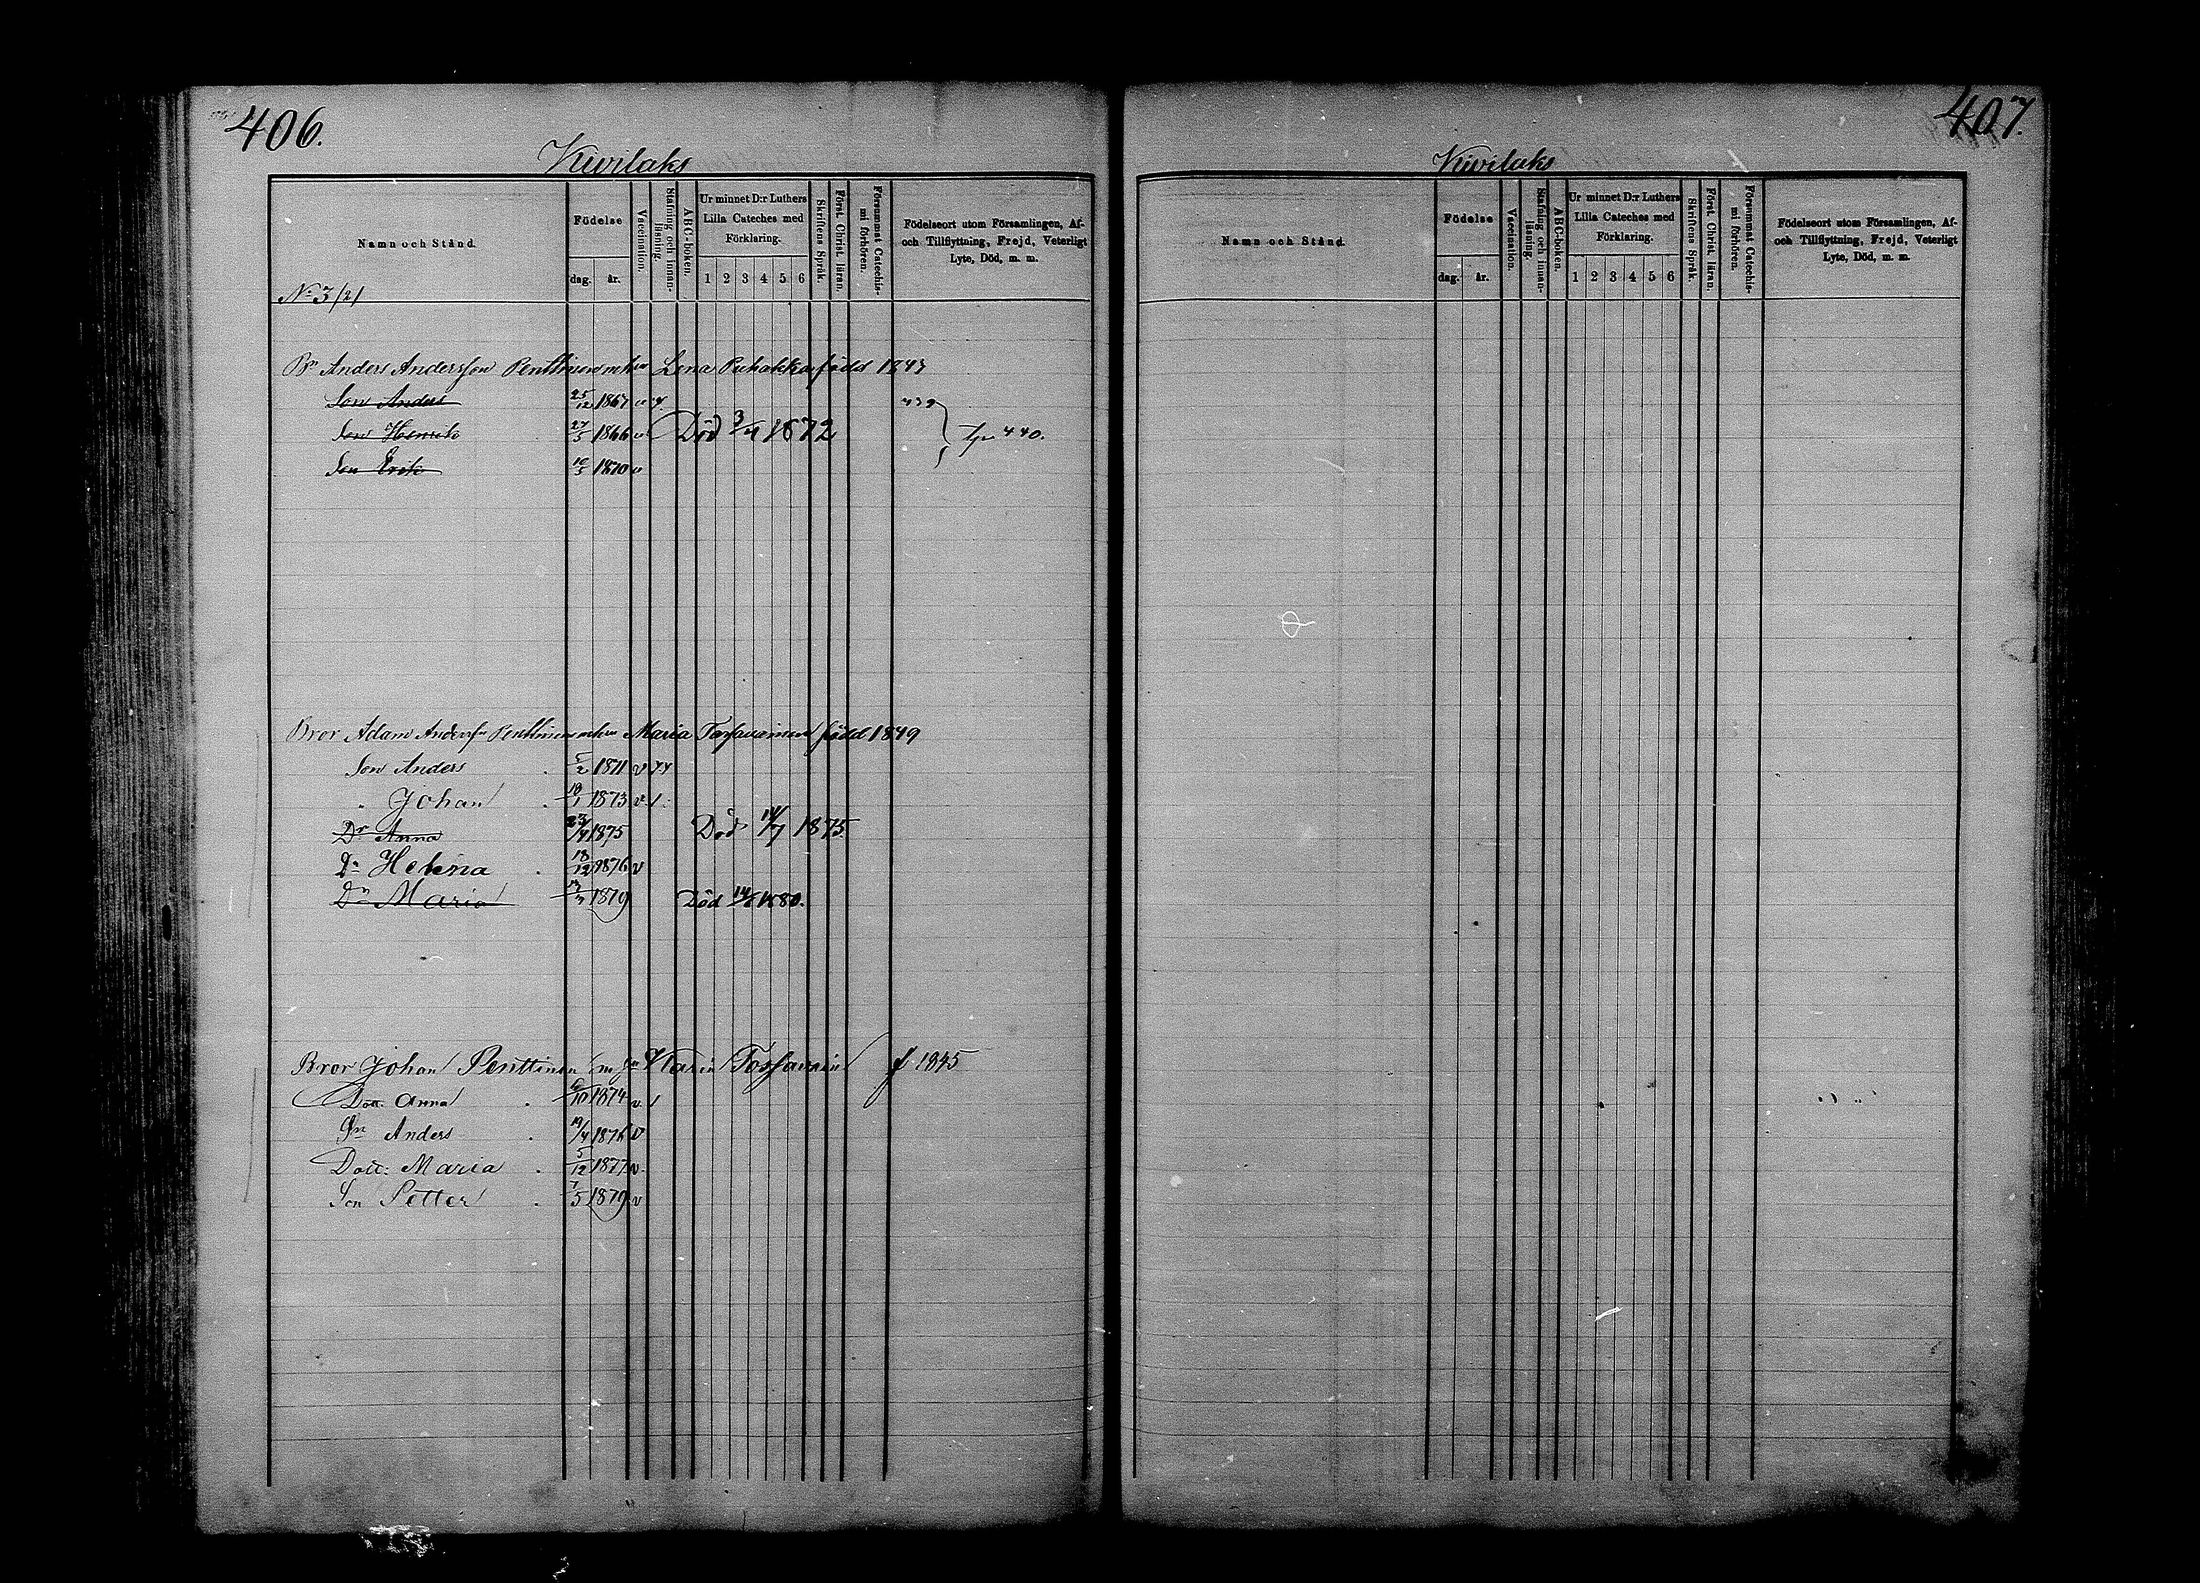 406.
Kivilaks
Namn och Stånd.
Födelse
dag. år.
Vaccination.
Stafning och innan-läsning.
ABC-boken.
Ur minnet D:r Luthers Lilla Cateches med Förklaring.
1 2 3 4 5 6
Skriftens Språk.
Först. Christ. läran.
Försummat Catechis-mi förhören.
Födelseort utom Församlingen, Af- och Tillflyttning, Frejd, Veterligt Lyte, Död, m. m.
No 3/2/
Bn Anders Andersson Penttinen m hu Lena Puhakka född 1843
Son Anders 25/12 1867 v 439
Son Henrik 27/5 1866 v Död 3/4 1872 440.
Son Erik 10/5 1870 v
Bror Adam Anderss. Penttinen m hu Maria Tossavainen född 1849
Son Anders 5/2 1871 v
" Johan 18/1 1873 v 1
Dr Anna 23/4 1875 Död 14/7 1875
Dr Helena 18/12 1876 v
Dr Maria 1879 Död 1880.
Bror Johan Penttinen m hu Karin Tossavain f 1845
Dott. Anna /10 1874 v. 1
Sn Anders 19/4 1876 v
Dott: Maria 5/12 1877 v.
Son Petter 7/5 1879 v
407.
Kivilaks
Namn och Stånd.
Födelse
dag. år.
Vaccination.
Stafning och innan-läsning.
ABC-boken.
Ur minnet D:r Luthers Lilla Cateches med Förklaring.
1 2 3 4 5 6
Skriftens Språk.
Först. Christ. läran.
Försummat Catechis-mi förhören.
Födelseort utom Församlingen, Af- och Tillflyttning, Frejd, Veterligt Lyte, Död, m. m.